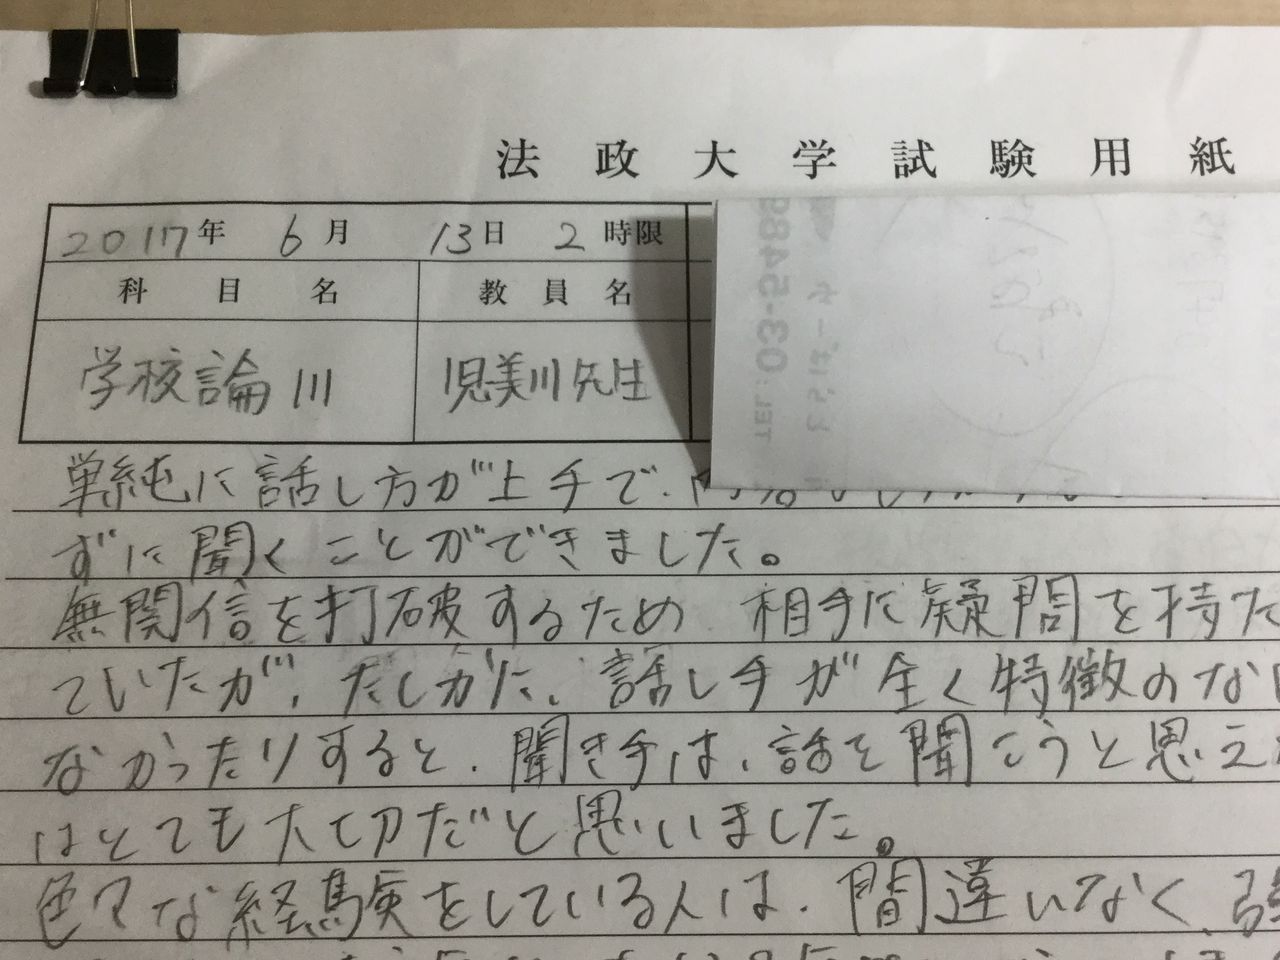 法政大学試験用紙
2017年 6月 13日 2時限
科目名 教員名
学校論III 児美川先生
TEL:03-548
単純に話し方が上手で、
ずに聞くことができました。
無関信を打破するため、相手に疑問を持た
ていたが、たしかに、話し手が全く特徴のな
なかったりすると、聞き手は、話を聞こうと思え
はとても大切だと思いました。
色々な経験をしている人は、間違いなく、強